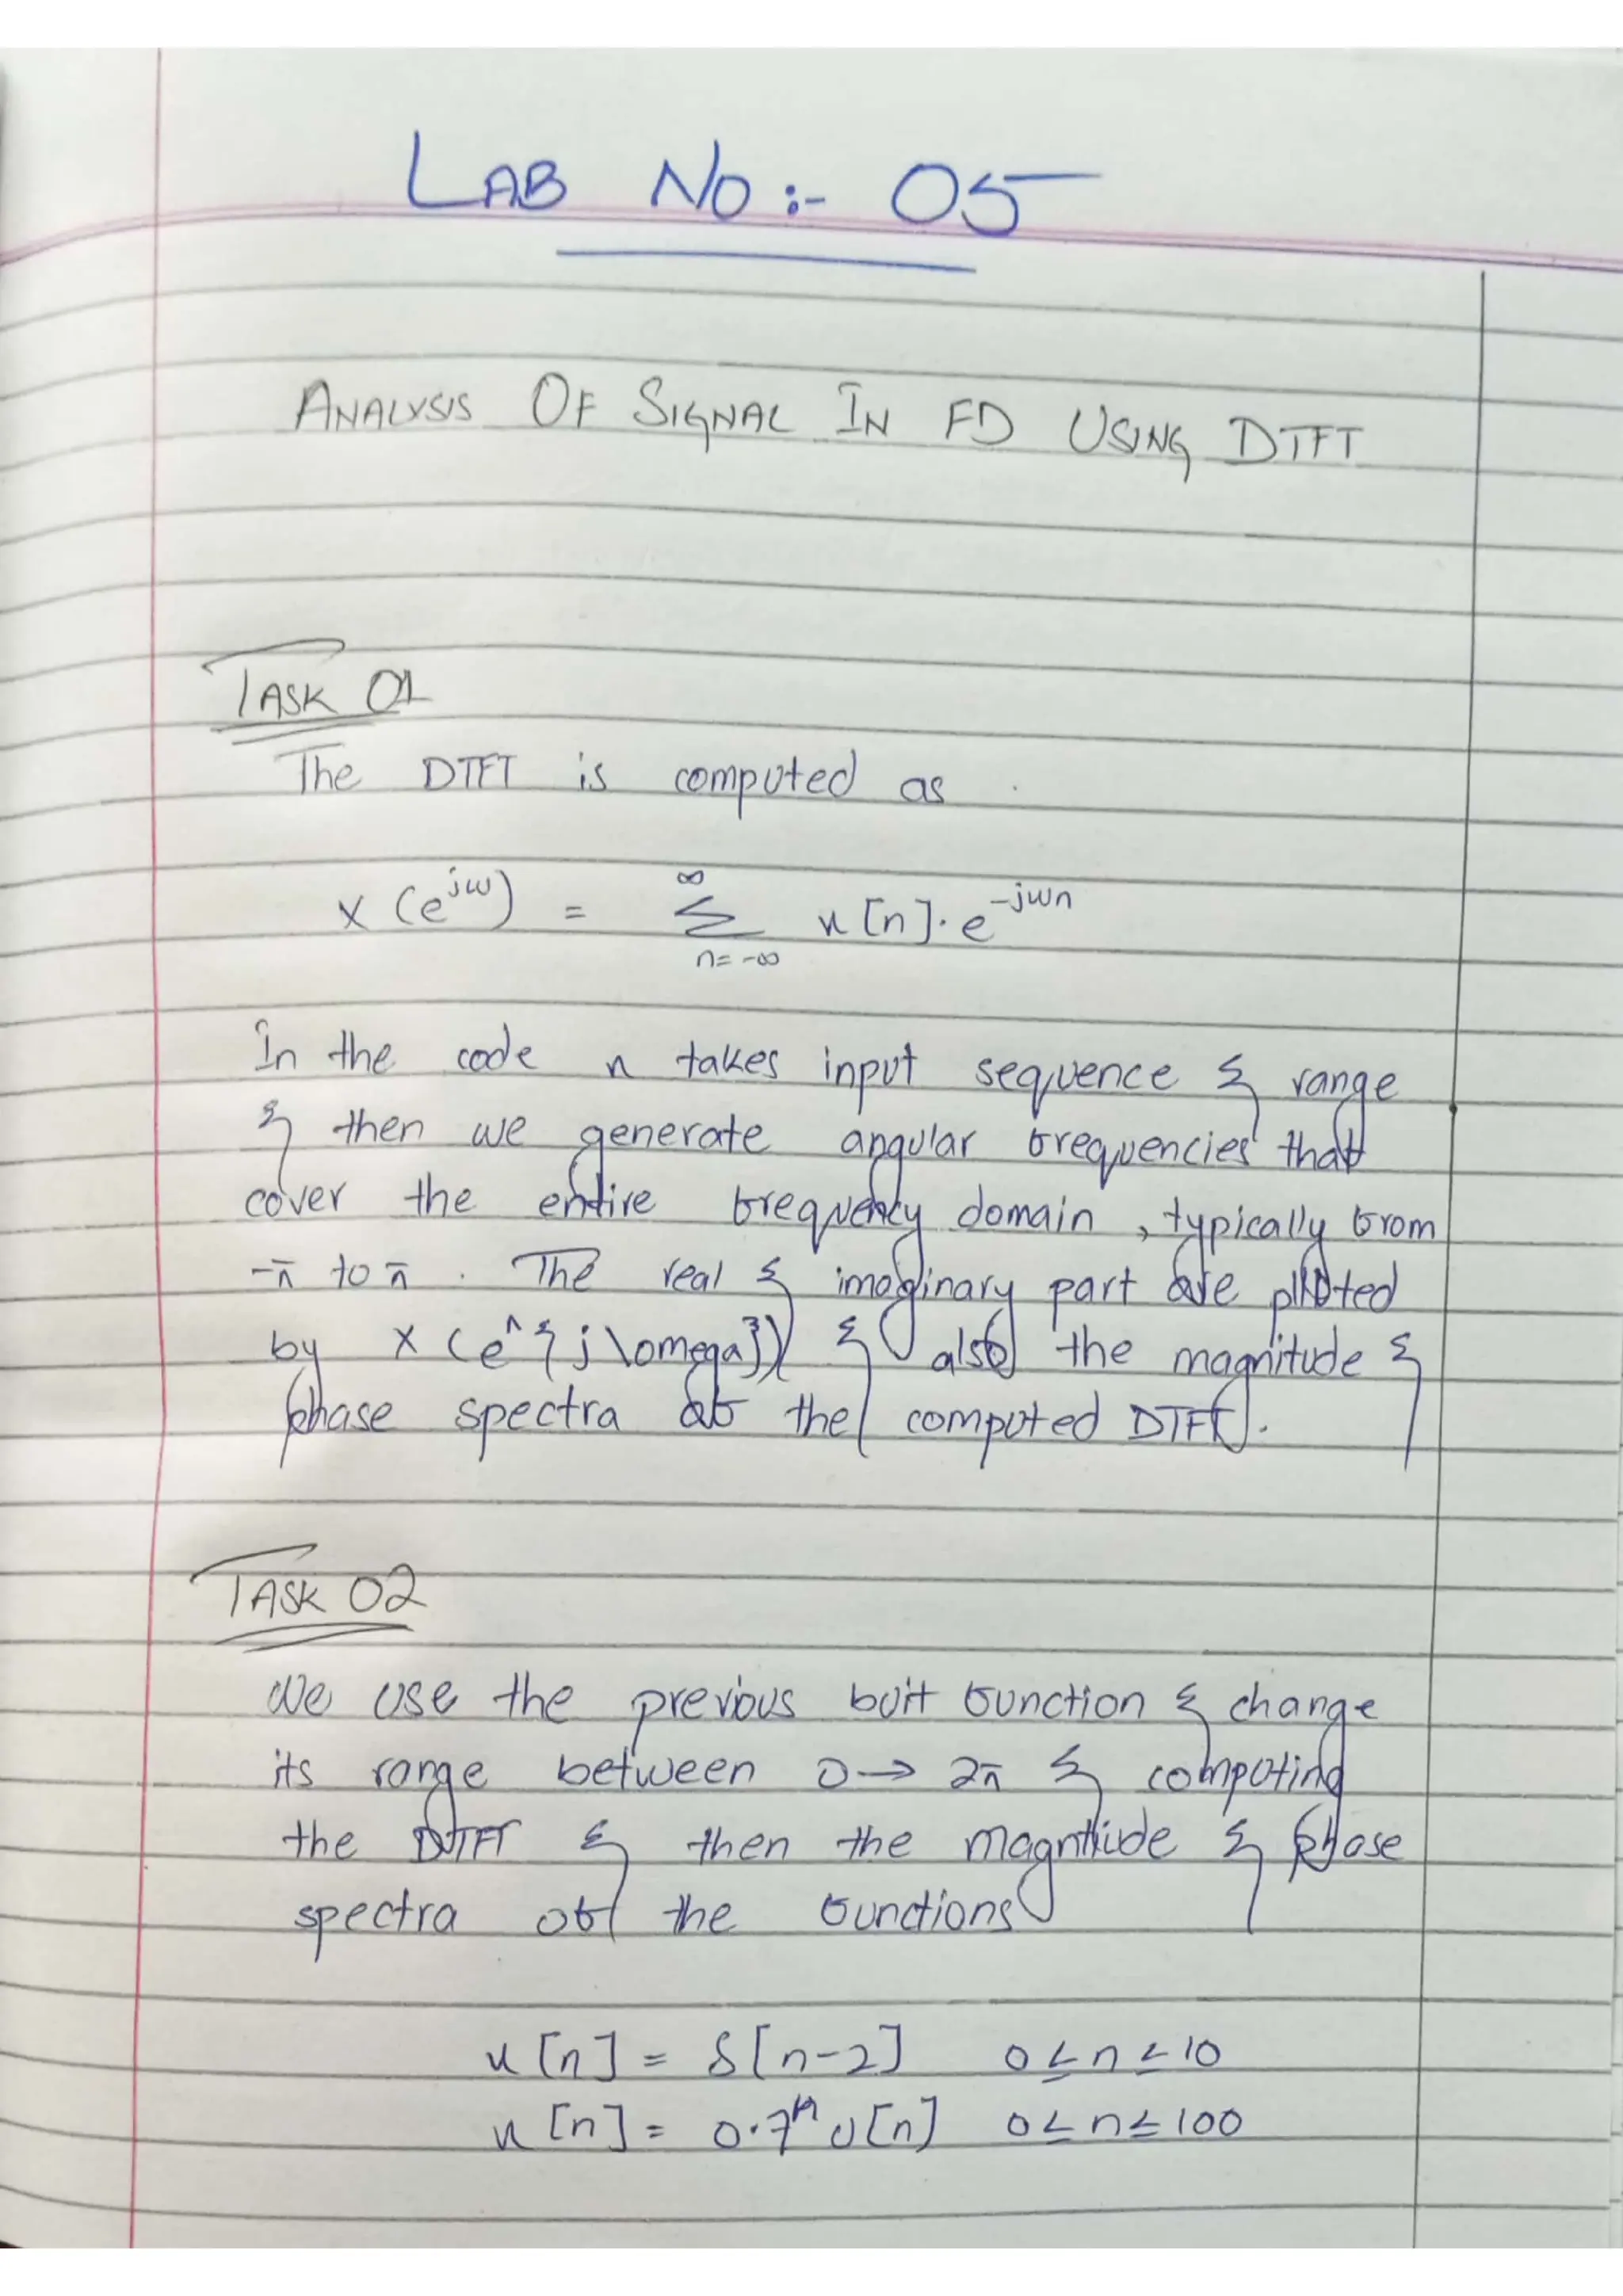 LAB No :- 05
ANALYSIS OF SIGNAL IN FD USING DTFT
TASK 01
The DTFT is computed as
X(e^{jω}) = Σ_{n=-∞}^{∞} x[n]. e^{-jωn}
In the code n takes input sequence & range
& then we generate angular frequencies that
cover the entire frequency domain, typically from
-π to π. The real & imaginary part are plotted
by X(e^{j\omega}) & also the magnitude &
phase spectra of the computed DTFT.
TASK 02
We use the previous buit function & change
its range between 0→ 2π & computing
the DTFT & then the magnitude & phase
spectra of the functions
x[n] = δ[n-2] 0≤n<10
x[n] = 0.7^n u[n] 0≤n≤100